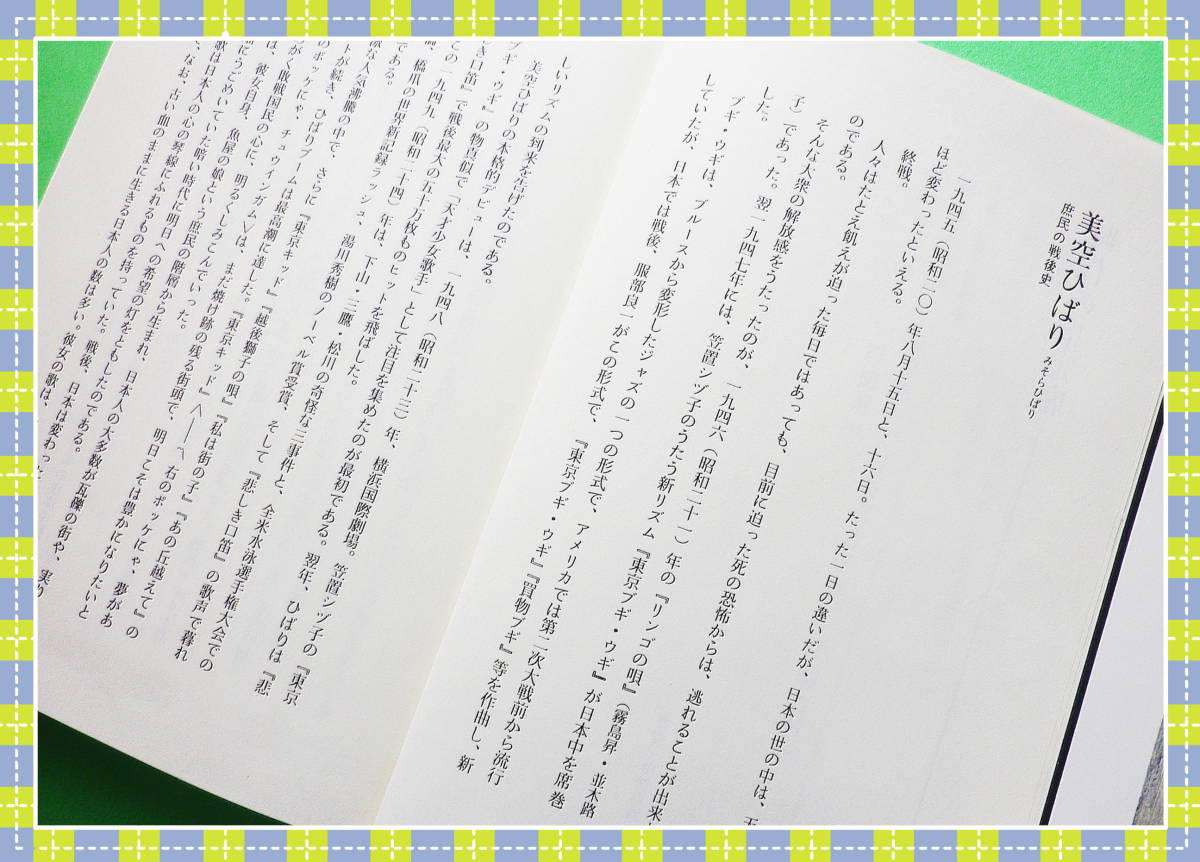 美空ひばり みそらひばり
庶民の戦後史
一九四五（昭和二〇）年八月十五日と、十六日。たった一日の違いだが、日本の世の中は、
ほど変わったといえる。
終戦。
人々はたとえ飢えが迫った毎日ではあっても、目前に迫った死の恐怖からは、逃れることが出来
のである。
そんな大衆の解放感をうたったのが、一九四六（昭和二十一）年の『リンゴの唄』（霧島昇・並木路
子）であった。翌一九四七年には、笠置シヅ子のうたう新リズム『東京ブギ・ウギ』が日本中を席巻
した。
ブギ・ウギは、ブルースから変形したジャズの一つの形式で、アメリカでは第二次大戦前から流行
していたが、日本では戦後、服部良一がこの形式で、『東京ブギ・ウギ』『買物ブギ』等を作曲し、新
しいリズムの到来を告げたのである。
美空ひばりの本格的デビューは、一九四八（昭和二十三）年、横浜国際劇場。笠置シヅ子の『東京
ブギ・ウギ』の物真似で「天才少女歌手」として注目を集めたのが最初である。翌年、ひばりは『悲
しき口笛』で戦後最大の五十万枚ものヒットを飛ばした。
この一九四九（昭和二十四）年は、下山・三鷹・松川の奇怪な三事件と、全米水泳選手権大会での
橋爪の世界新記録ラッシュ、湯川秀樹のノーベル賞受賞、そして『悲しき口笛』の歌声で暮れ
である。
な人気沸騰の中で、さらに『東京キッド』『越後獅子の唄』『私は街の子』『あの丘越えて』の
ットが続き、ひばりブームは最高潮に達した。『東京キッド』〈――〽右のポッケにゃ、夢があ
のポッケにゃ、チューインガム〉は、まだ焼け跡の残る街頭で、明日こそは豊かになりたいと
がく敗戦国民の心に、明るくしみこんでいった。
は、彼女自身、魚屋の娘という庶民の階層から生まれ、日本人の大多数が瓦礫の街や、
にうごめいていた暗い時代に明日への希望の灯をともしたのである。
歌は日本人の心の琴線にふれるものを持っていた。戦後、日本は変わった
なお、古い血のままに生きる日本人の数は多い。彼女の歌は、